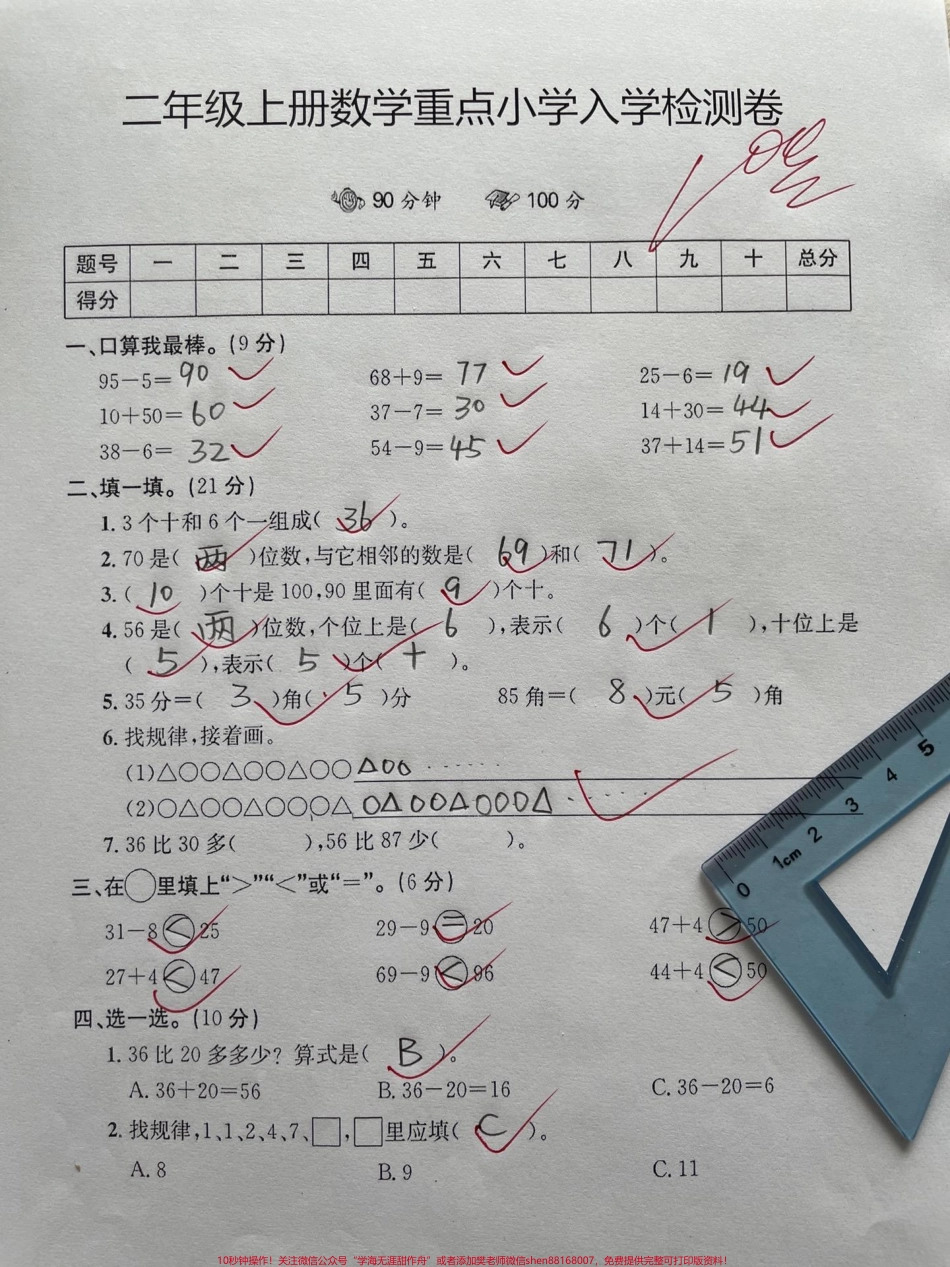 二年级上册数学重点小学入学检测卷
90分钟 100分
题号 一 二 三 四 五 六 七 八 九 十 总分
得分
一、口算我最棒。(9分)
95-5=90 68+9=77 25-6=19
10+50=60 37-7=30 14+30=44
38-6=32 54-9=45 37+14=51
二、填一填。(21分)
1. 3个十和6个一组成( 36 )。
2. 70是( 两 )位数,与它相邻的数是( 69 )和( 71 )。
3. ( 10 )个十是100,90里面有( 9 )个十。
4. 56是( 两 )位数,个位上是( 6 ),表示( 6 )个( 1 ),十位上是
( 5 ),表示( 5 )个( 十 )。
5. 35分=( 3 )角( 5 )分 85角=( 8 )元( 5 )角
6. 找规律,接着画。
(1)△○○△○○△○○△○○······
(2)○△○○△○○○△○△○○△○○○△·····
7. 36比30多( ),56比87少( )。
三、在○里填上“>”“<”或“=”。(6分)
31-8<25 29-9=20 47+4>50
27+4<47 69-9<96 44+4<50
四、选一选。(10分)
1. 36比20多多少?算式是( B )。
A. 36+20=56 B. 36-20=16 C. 36-20=6
2. 找规律,1、1、2、4、7、□,□里应填( C )。
A. 8 B. 9 C. 11
0 1cm 2 3 4 5
10秒钟操作!关注微信公众号“学海无涯甜作舟”或者添加樊老师微信shen88168007,免费提供完整可打印版资料!